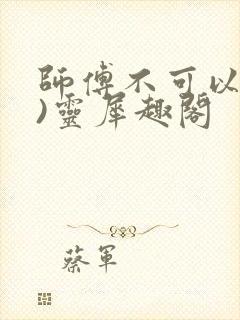 師傅不可以
)靈犀趣閣
蔡軍